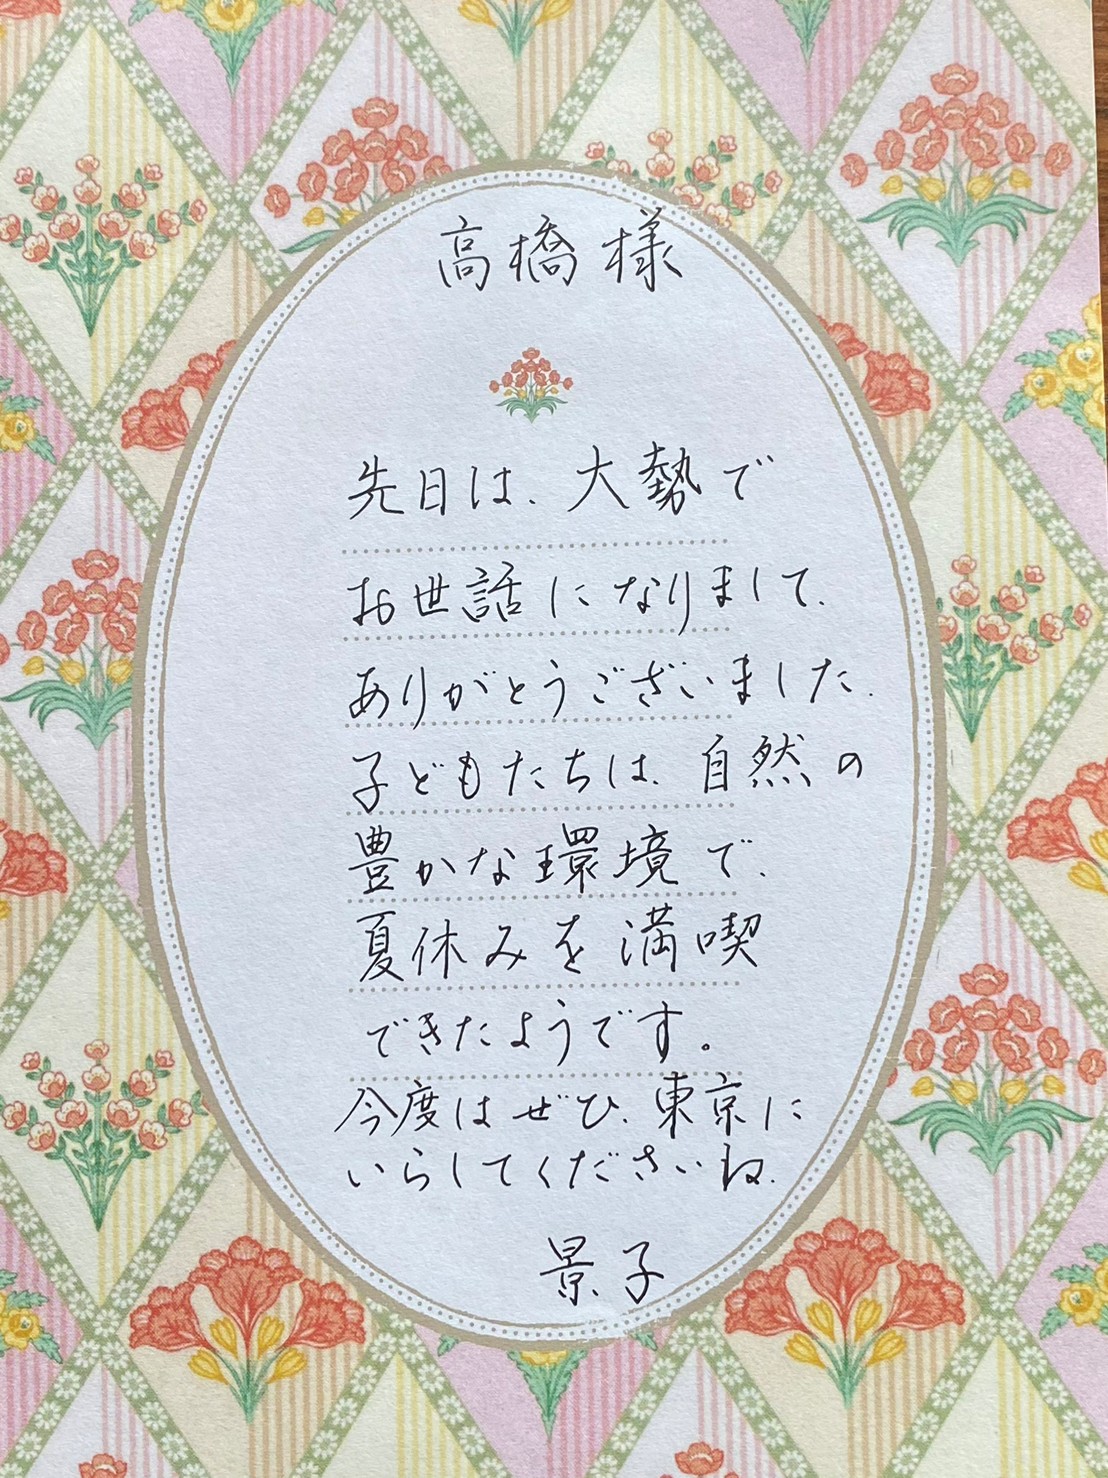 高橋様
先日は、大勢で
お世話になりまして、
ありがとうございました。
子どもたちは、自然の
豊かな環境で、
夏休みを満喫
できたようです。
今度はぜひ、東京に
いらしてくださいね。
景子